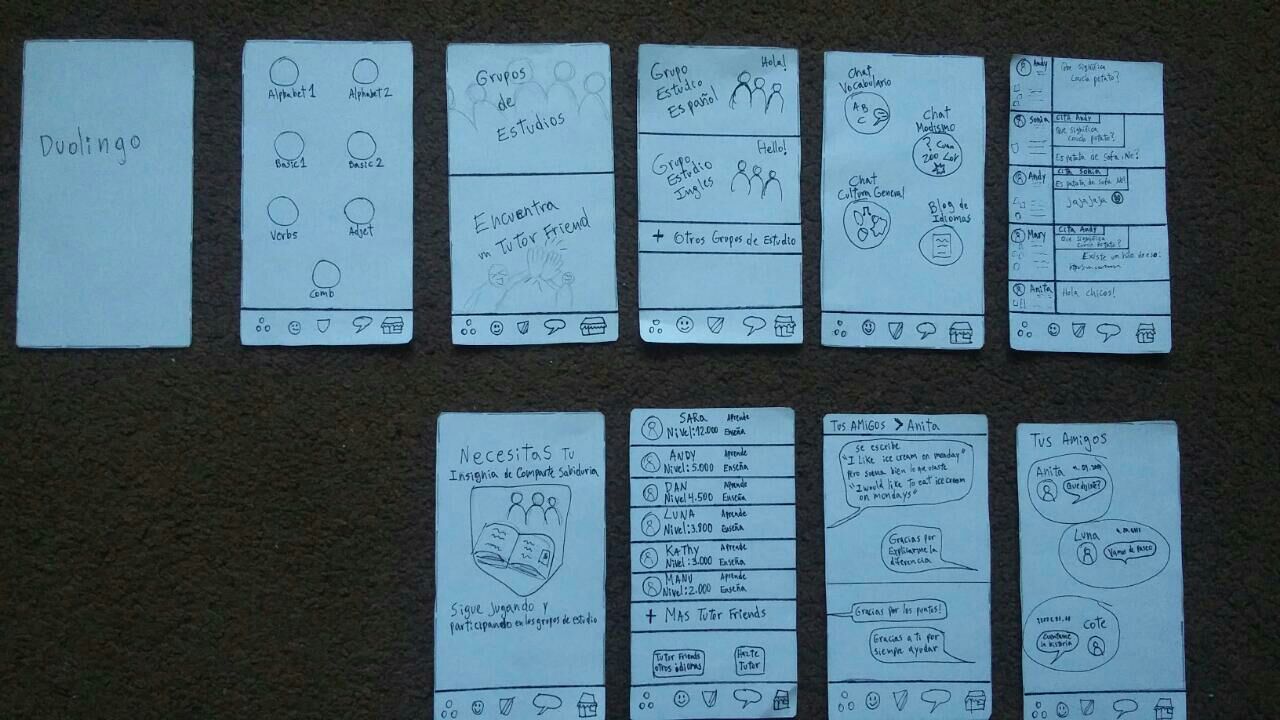 Duolingo
Alphabet 1
Alphabet 2
Basic 1
Basic 2
Verbs
Adjet
Comb
Grupos
de
Estudios
Encuentra
un Tutor Friend
Hola!
Grupo
Estudio
Español
Hello!
Grupo
Estudio
Ingles
+ Otros Grupos de Estudio
Chat
Vocabulario
A B
C
Chat
Modismo
Chat
Cultura General
Blog de
Idiomas
Andy
Que significa
Couch potato?
Sonia
Cita Andy
Que significa
Couch potato?
Es patata de sofa, Ne?
Andy
Cita Sonia
Es patata de sofa
Jajajaja
Mary
Cita Andy
Que significa
Couch potato?
Existe un hilo de eso:
Anita
Hola chicos!
Necesitas Tu
Insignia de Comparte Sabiduria
Sigue jugando y
participando en los grupos de estudio
SARA
Aprende
Nivel: 12.000
Enseña
ANDY
Aprende
Nivel: 5.000
Enseña
DAN
Aprende
Nivel 4.500
Enseña
LUNA
Aprende
Nivel: 3.800
Enseña
KATHY
Aprende
Nivel: 3.000
Enseña
MANU
Aprende
Nivel: 2.000
Enseña
+ MAS Tutor Friends
Tutor Friends
otros idiomas
Hazte
Tutor
Tus AMIGOS > Anita
se escribe
"I Like ice cream on monday"
Pero suena bien lo que
"I would like to eat ice cream
on mondays"
Gracias por
Explicarme la
diferencia
Gracias por los puntos!
Gracias a ti por
siempre ayudar
Tus Amigos
Anita
Luna
Vamos de paseo
Cote
Cuentame
la historia